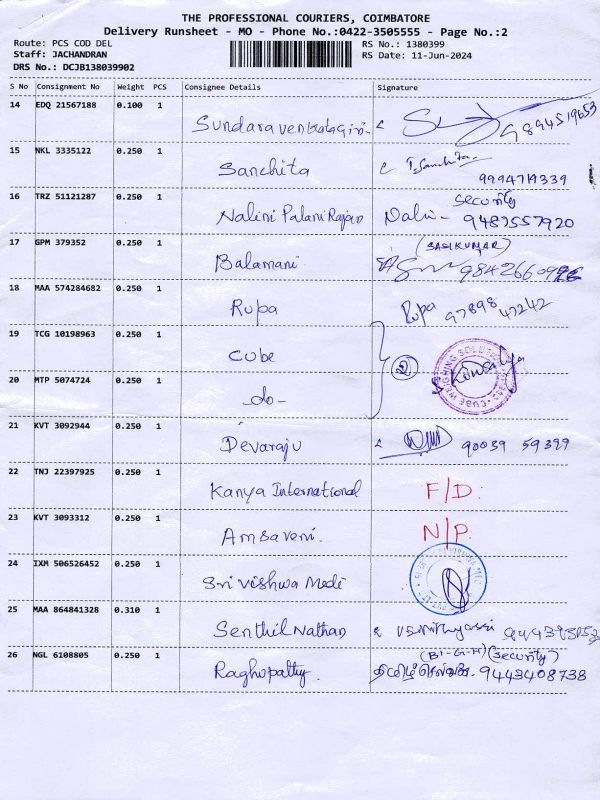 THE PROFESSIONAL COURIERS, COIMBATORE
Delivery Runsheet - MO - Phone No.:0422-3505555 - Page No.:2
Route: PCS COD DEL RS No.: 1380399
Staff: JACHANDRAN RS Date: 11-Jun-2024
DRS No.: DCJB138039902
S No Consignment No Weight PCS Consignee Details Signature
14 EDQ 21567188 0.100 1
15 NKL 3335122 0.250 1 Sanchita 9994719339
16 TRZ 51121287 0.250 1 Nalini Palani Rajan Security 9487557920
17 GPM 379352 0.250 1 Balamani (SASIKUMAR)
18 MAA 574284682 0.250 1 Rupa Rupa 97898 47242
19 TCG 10198963 0.250 1 Cube
20 MTP 5074724 0.250 1 -do- 2
21 KVT 3092944 0.250 1 Devaraju
22 TNJ 22397925 0.250 1 Kanya International F/D.
23 KVT 3093312 0.250 1 Amsaveni. N/P.
24 IXM 506526452 0.250 1 Sri Vishwa Medi
25 MAA 864841328 0.310 1 Senthil Nathan
26 NGL 6108805 0.250 1 Raghupathy. (Security) 9443408738